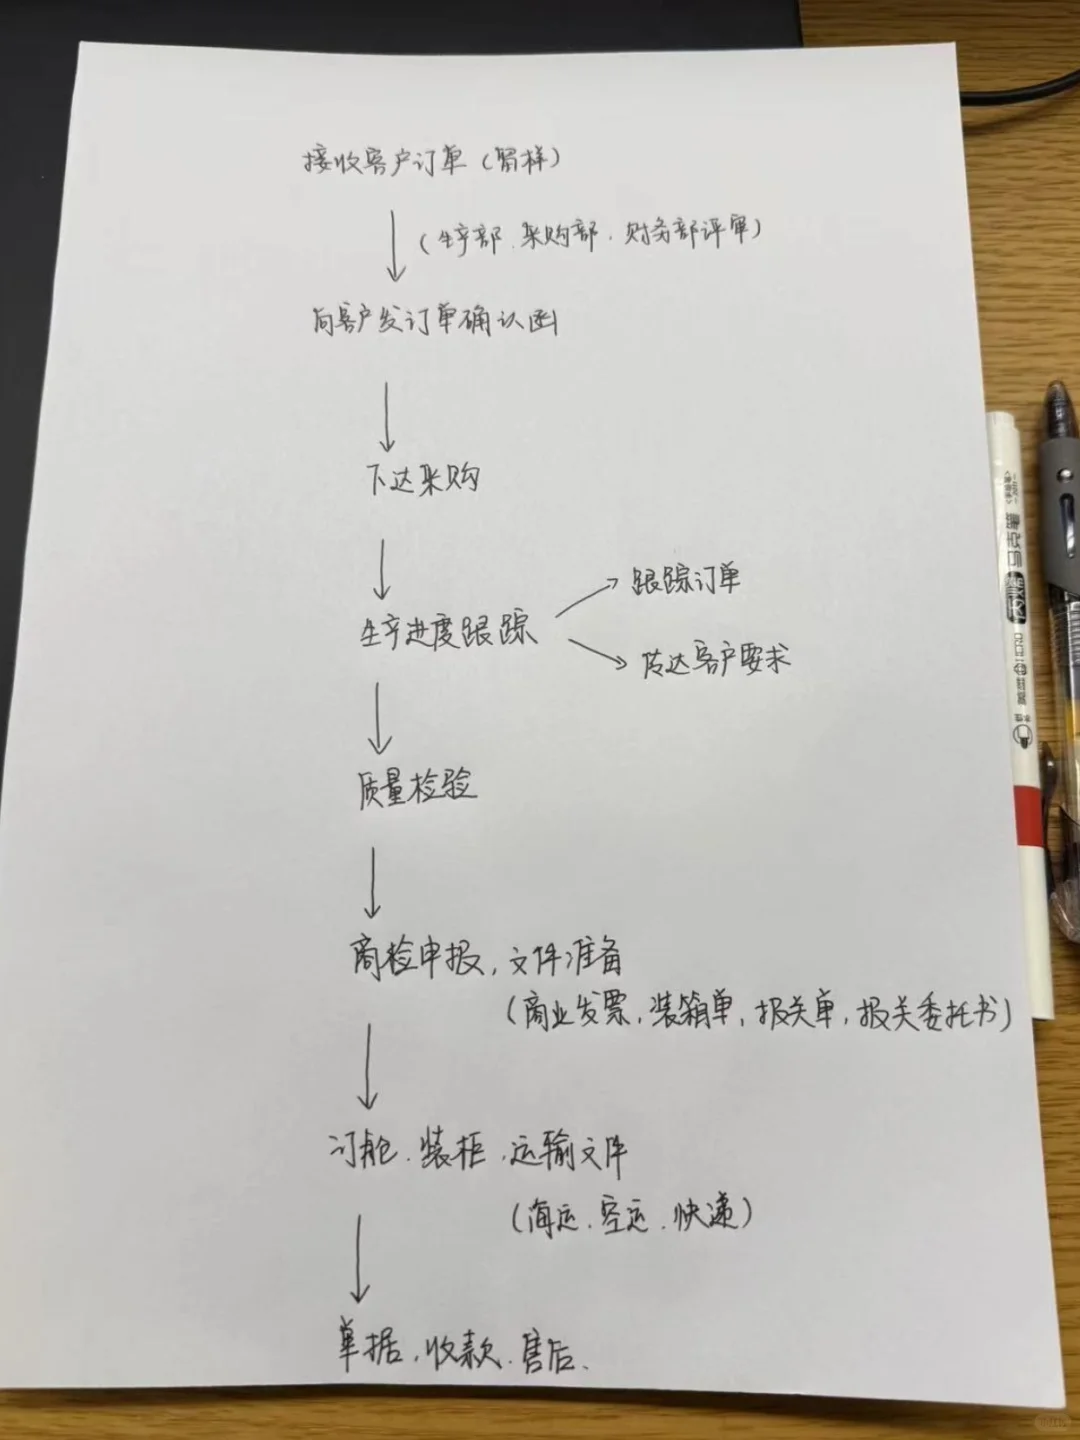 接收客户订单（留样）
（生产部、采购部、财务部评审）
向客户发订单确认函
下达采购
跟踪订单
生产进度跟踪
传达客户要求
质量检验
商检申报，文件准备
（商业发票，装箱单，报关单，报关委托书）
订舱、装柜，运输文件
（海运、空运、快递）
单据，收款、售后、